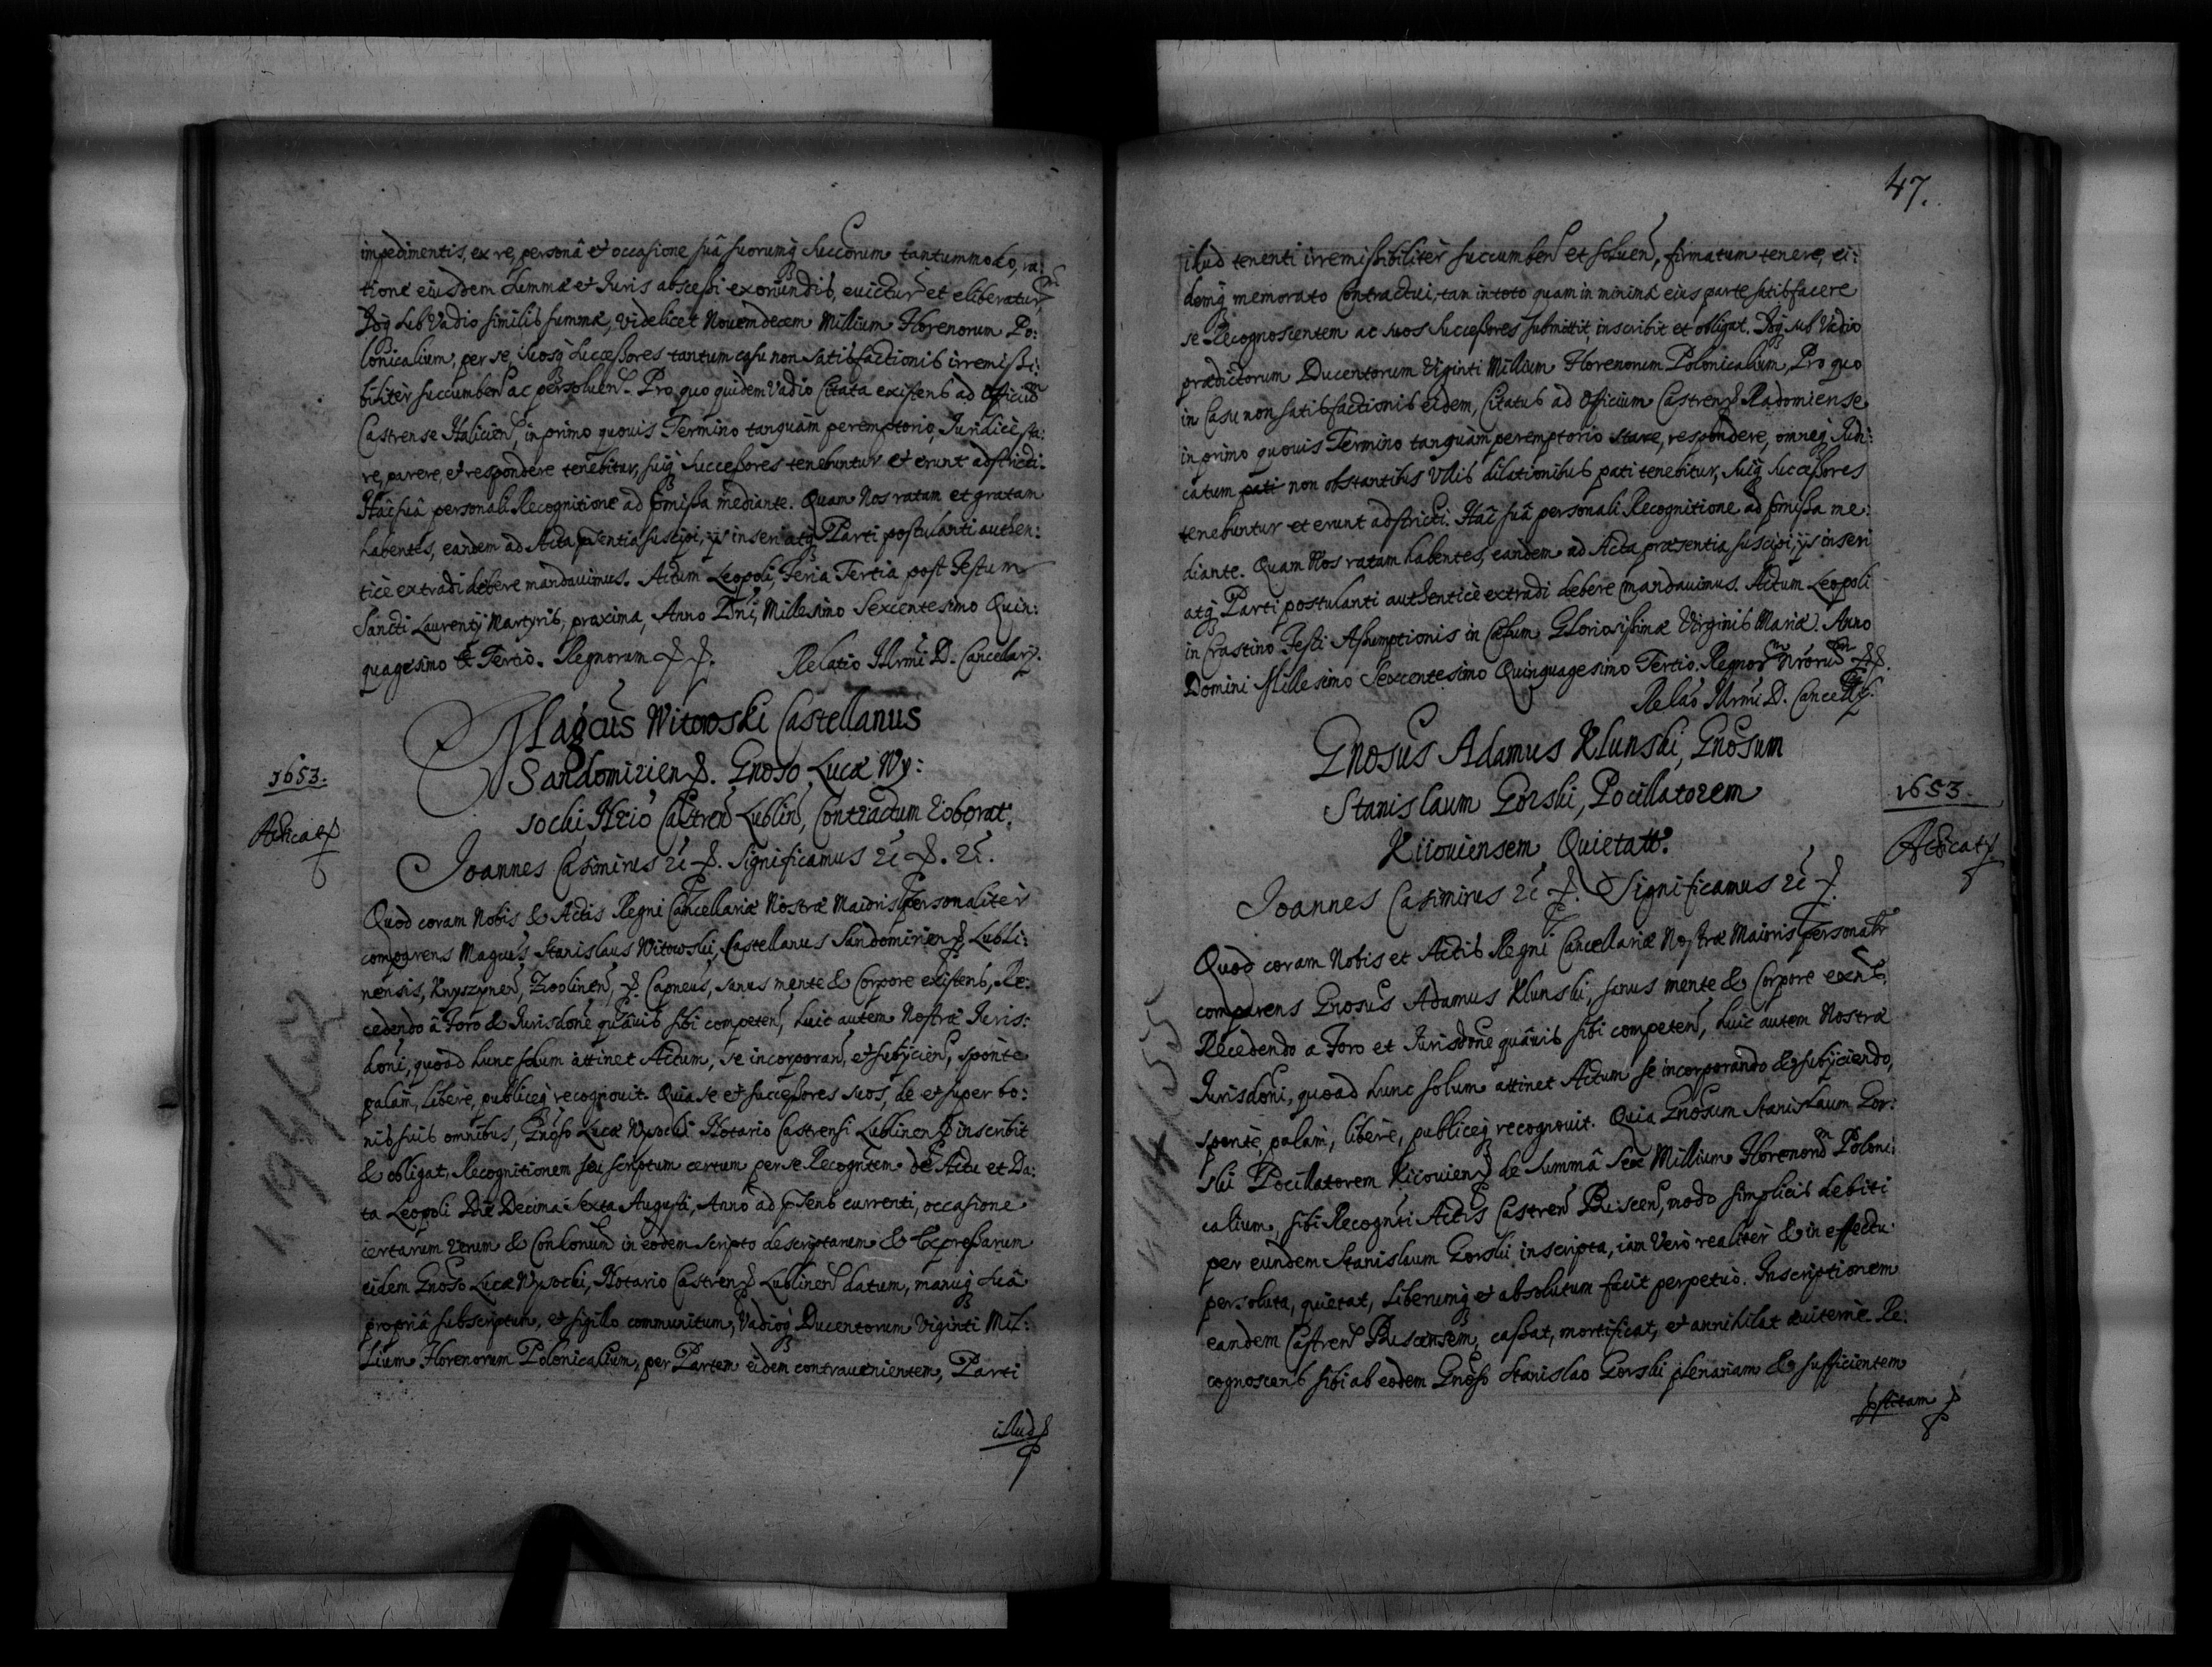 impedimentis, ex re, personâ et occasione suâ suorumq Succorum tantummodo, ra:
tione eiusdem Summæ et Iuris abscessi exoriundis, euictur et eliberatur,
Idq Sub Vadio similis summæ, videlicet Nouemdecem Millium Florenorum Po:
lonicalium, per se, Suosq Successores tantum casu non satisfactionis irremissi:
biliter succumben ac persoluen. Pro quo quidem Vadio Citata existens ad Officiu
Castrense Halicien, in primo quouis Termino tanquàm peremptorio, Iuridicè sta:
re, parere, et respondere tenebitur, suiq Successores tenebuntur et erunt adstricti.
Hac suâ personali Recognitione ad præmissa mediante. Quam Nos ratam et gratam
habentes, eandem ad Acta pntia suscipi, ijs inseri atq Parti postulanti authen:
ticè extradi debere mandauimus. Actum Leopoli, Feria Tertia post Festum
Sancti Laurentij Martyris, proxima, Anno Dni, Millesimo Sexcentesimo Quin:
quagesimo Tertio. Regnorum
Relatio Illrmi D. Cancellarij.
Magcus Witowski Castellanus
Sandomirien. Gnoso Lucæ Wy:
socki Ntrio Castren Lublin, Contractum roborat.
1653.
Ioannes Casimirus Significamus
Quod coram Nobis & Actis Regni Cancellariæ Nostræ Maioris personaliter
comparens Magcus Stanislaus Witowski, Castellanus Sandomirien Lubli:
nensis, Knyszynen, Zwolinen, Capneus, sanus mente & Corpore existens, Re:
cedendo â Foro & Iurisdone quâuis sibi competen, huic autem Nostræ Iuris:
doni, quoad hunc solum attinet Actum, se incorporan, et subijcien, spontè
palam, liberè, publiceq recognouit. Quia se et successores suos, de et super bo:
nis suis omnibus, Gnoso Lucæ Wysocki Notario Castrensi Lublinen inscribit
& obligat, Recognitionem seu scriptum certum per se Recogntem de Actu et Da:
ta Leopoli Die Decima Sexta Augusti, Anno ad præsens currenti, occasione
certarum rerum & Condonum in eodem scripto descriptarum & Expressarum
eidem Gnoso Lucæ Wysocki, Notario Castren Lublinen datum, manuq suâ
propriâ subscriptum, et sigillo communitum, Vadioq Ducentorum Viginti Mil:
lium Florenorum Polonicalium, per Partem eidem contrauenientem, Parti
illud
47.
illud tenenti irremissibiliter succumben et soluen, firmatum tenere, ei:
demq memorato Contractui, tan in toto quam in minimæ eius parte satisfacere
se Recognoscentem ac suos Successores submittit, inscribit et obligat. Idq sub Vadio
prædictorum Ducentorum Viginti Millium Florenorum Polonicalium, Pro quo
in Casu non satisfactionis eidem, Citatus ad Officium Castren Radomiense
in primo quouis Termino tanquàm peremptorio stare, respondere, omneq Iudi:
catum pati non obstantibus Vllis dilationibus pati tenebitur, suiq Successores
tenebuntur et erunt adstricti. Hac suâ personali Recognitione ad præmissa me:
diante. Quam Nos ratam habentes, eandem ad Acta præsentia suscipi, ijs inseri
atq Parti postulanti authenticè extradi debere mandauimus. Actum Leopoli
in Crastino Festi Assumptionis in Cælum Gloriosissimæ Virginis Mariæ. Anno
Domini Millesimo Sexcentesimo Quinquagesimo Tertio. Regnor Nroru
Relao Illrmi D. Cancellrij.
Gnosus Adamus Klunski, Gnosum
Stanislaum Gorski, Pocillatorem
Kiiouiensem Quietatt.
1653.
Ioannes Casimirus Significamus
Quod coram Nobis et Actis Regni Cancellariæ Nostræ Maioris personalr
comparens Gnosus Adamus Klunski, sanus mente & Corpore exns.
Recedendo a Foro et Iurisdone quâuis sibi competen, huic autem Nostræ
Iurisdoni, quoad hunc solum attinet Actum se incorporando & subijciendo,
spontè, palam, liberè, publiceq recognouit. Quia Gnosum Stanislaum Gor:
ski Pocillatorem Kiiouien de Summâ Sex Millium Florenoru Poloni:
calium, sibi Recognti Actis Castren Biecen, modo simplicis debiti
per eundem Stanislaum Gorski inscripta, iam Verò realiter & in effectu
persoluta, quietat, Liberumq et absolutum facit perpetuò. Inscriptionem
eandem Castren Biecensem, cassat, mortificat, et annihilat æuiternè. Re:
cognoscens sibi ab eodem Gnoso Stanislao Gorski plenariam & sufficientem